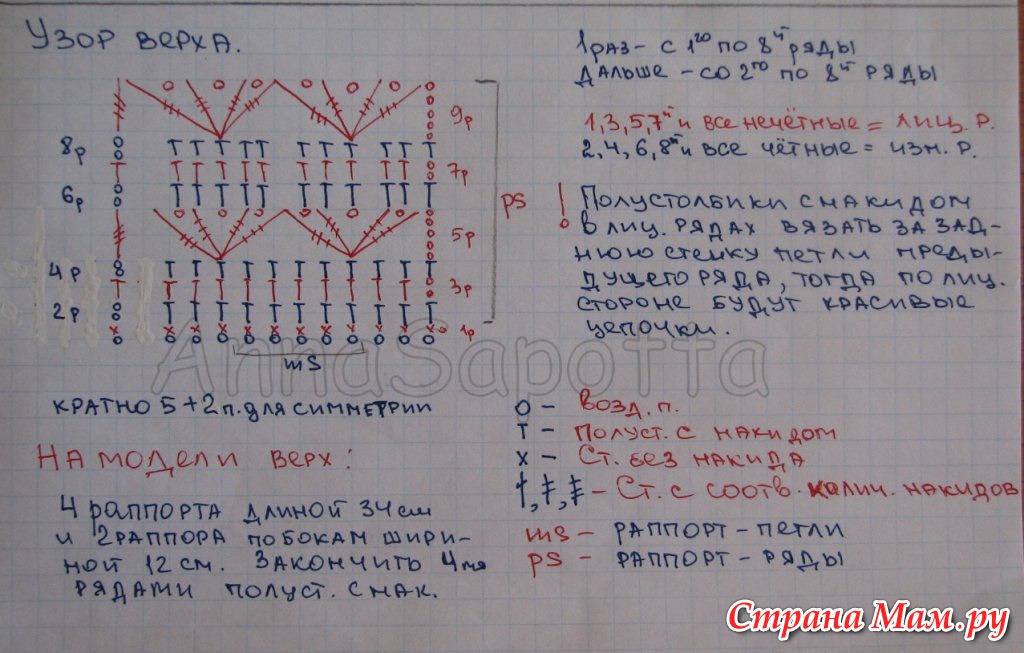 Узор верха.
1 раз - с 1го по 8й ряды
дальше - со 2го по 8й ряды
1,3,5,7й и все нечётные = лиц. р.
2,4,6,8й и все чётные = изн. р.
! Полустолбики с накидом
в лиц. рядах вязать за зад-
нюю стенку петли преды-
дущего ряда, тогда по лиц.
стороне будут красивые
цепочки.
9р
8р
7р
6р
ps
5р
4р
3р
2р
1р
ms
AnnaSapotta
кратно 5+2п. для симметрии
На модели верх:
4 раппорта длиной 34 см
и 2 раппора по бокам шири-
ной 12 см. Закончить 4мя
рядами полуст. с нак.
о - возд. п.
т - полуст. с накидом
х - ст. без накида
- Ст. с соотв. калич. накидов
ms - раппорт - петли
ps - раппорт - ряды
Страна Мам.ру